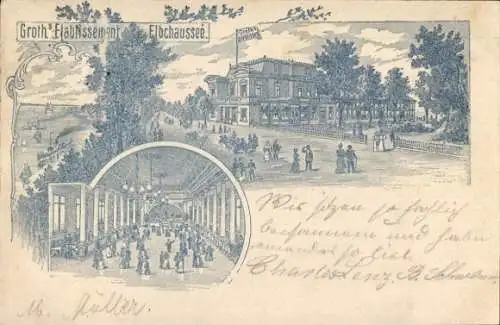 Groth's Etablissement Elbchaussee.
Wir sitzen so fröhlich
beisammen und haben
einander so lieb.
Charles Lenz. B.
M. Müller.